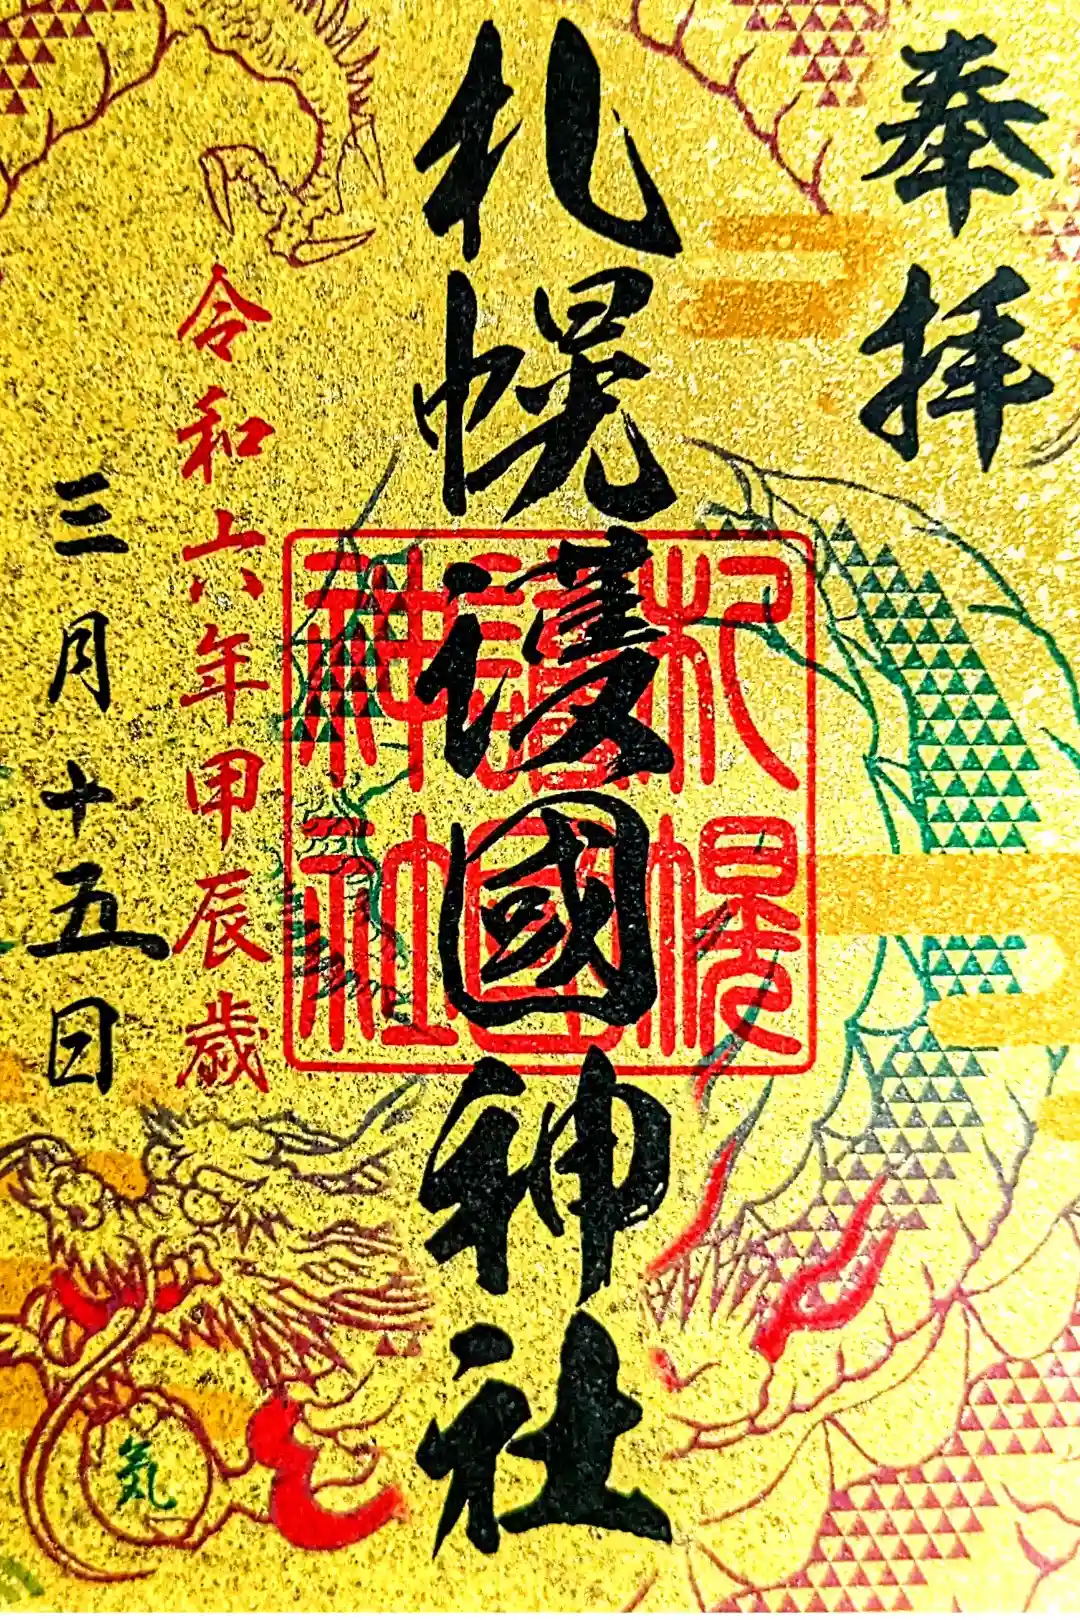 奉拝
札幌護國神社
札幌
護國
神社
令和六年甲辰歳
三月十五日
気